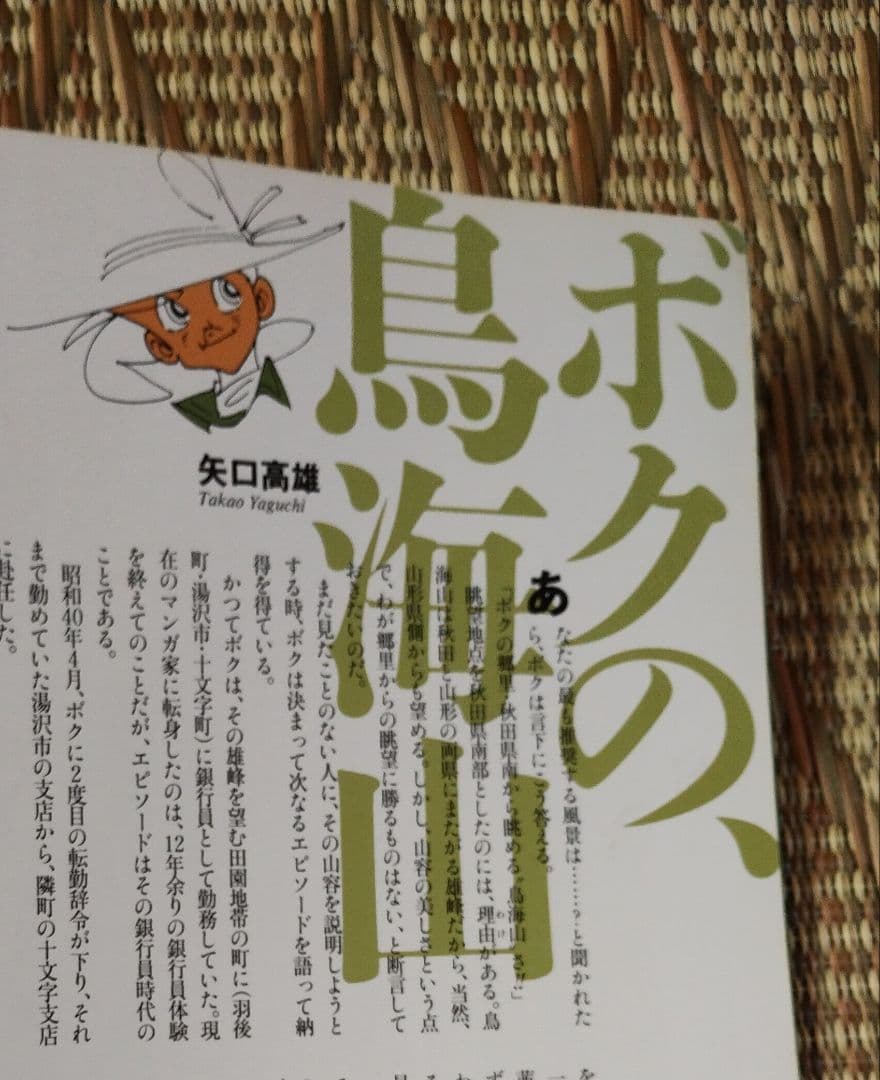 ボクの、
鳥海山
矢口高雄
Takao Yaguchi
あなたの最も推奨する風景は……？と聞かれた
ら、ボクは言下にこう答える。
「ボクの郷里・秋田県南から眺める〝鳥海山〟さ!!」
眺望地点を秋田県南部としたのには、理由がある。鳥
わけ
海山は秋田と山形の両県にまたがる雄峰だから、当然、
山形県側からも望める。しかし、山容の美しさという点
で、わが郷里からの眺望に勝るものはない、と断言して
おきたいのだ。
まだ見たことのない人に、その山容を説明しようと
する時、ボクは決まって次なるエピソードを語って納
得を得ている。
かつてボクは、その雄峰を望む田園地帯の町に（羽後
町・湯沢市・十文字町）に銀行員として勤務していた。現
在のマンガ家に転身したのは、12年余りの銀行員体験
を終えてのことだが、エピソードはその銀行員時代の
ことである。
昭和40年4月、ボクに2度目の転勤辞令が下り、それ
まで勤めていた湯沢市の支店から、隣町の十文字支店
に赴任した。